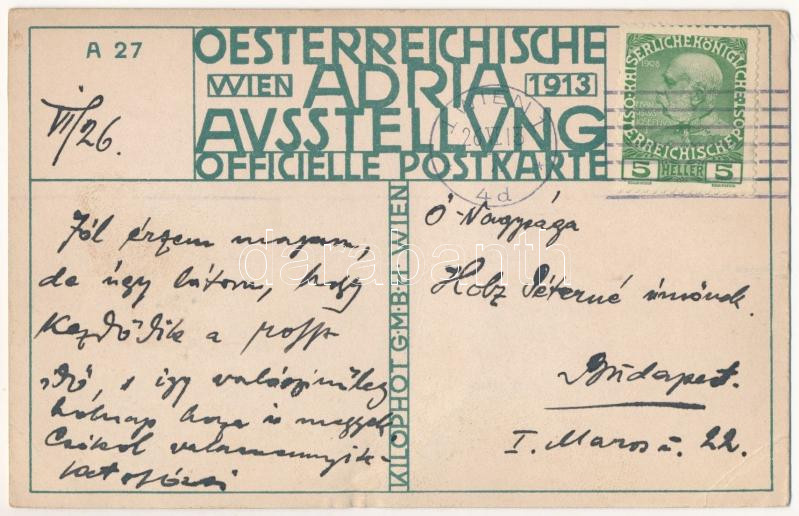 A 27
OESTERREICHISCHE
WIEN ADRIA 1913
AVSSTELLVNG
OFFICIELLE POSTKARTE
KAISERLICHEKÖNIGLICHE
ÖSTERREICHISCHE POST
1908
5 HELLER 5
WIEN
4d
VII/26.
KILOPHOT G·M·B·H· WIEN
Jól érzem magam,
de úgy látom, hogy
kezdődik a rossz
idő, s így valószinűleg
holnap haza is megyek
Csókol valamennyi
Ő Nagysága
Holz Péterné úrnőnek
Budapest.
I. Maros u. 22.
darabanth